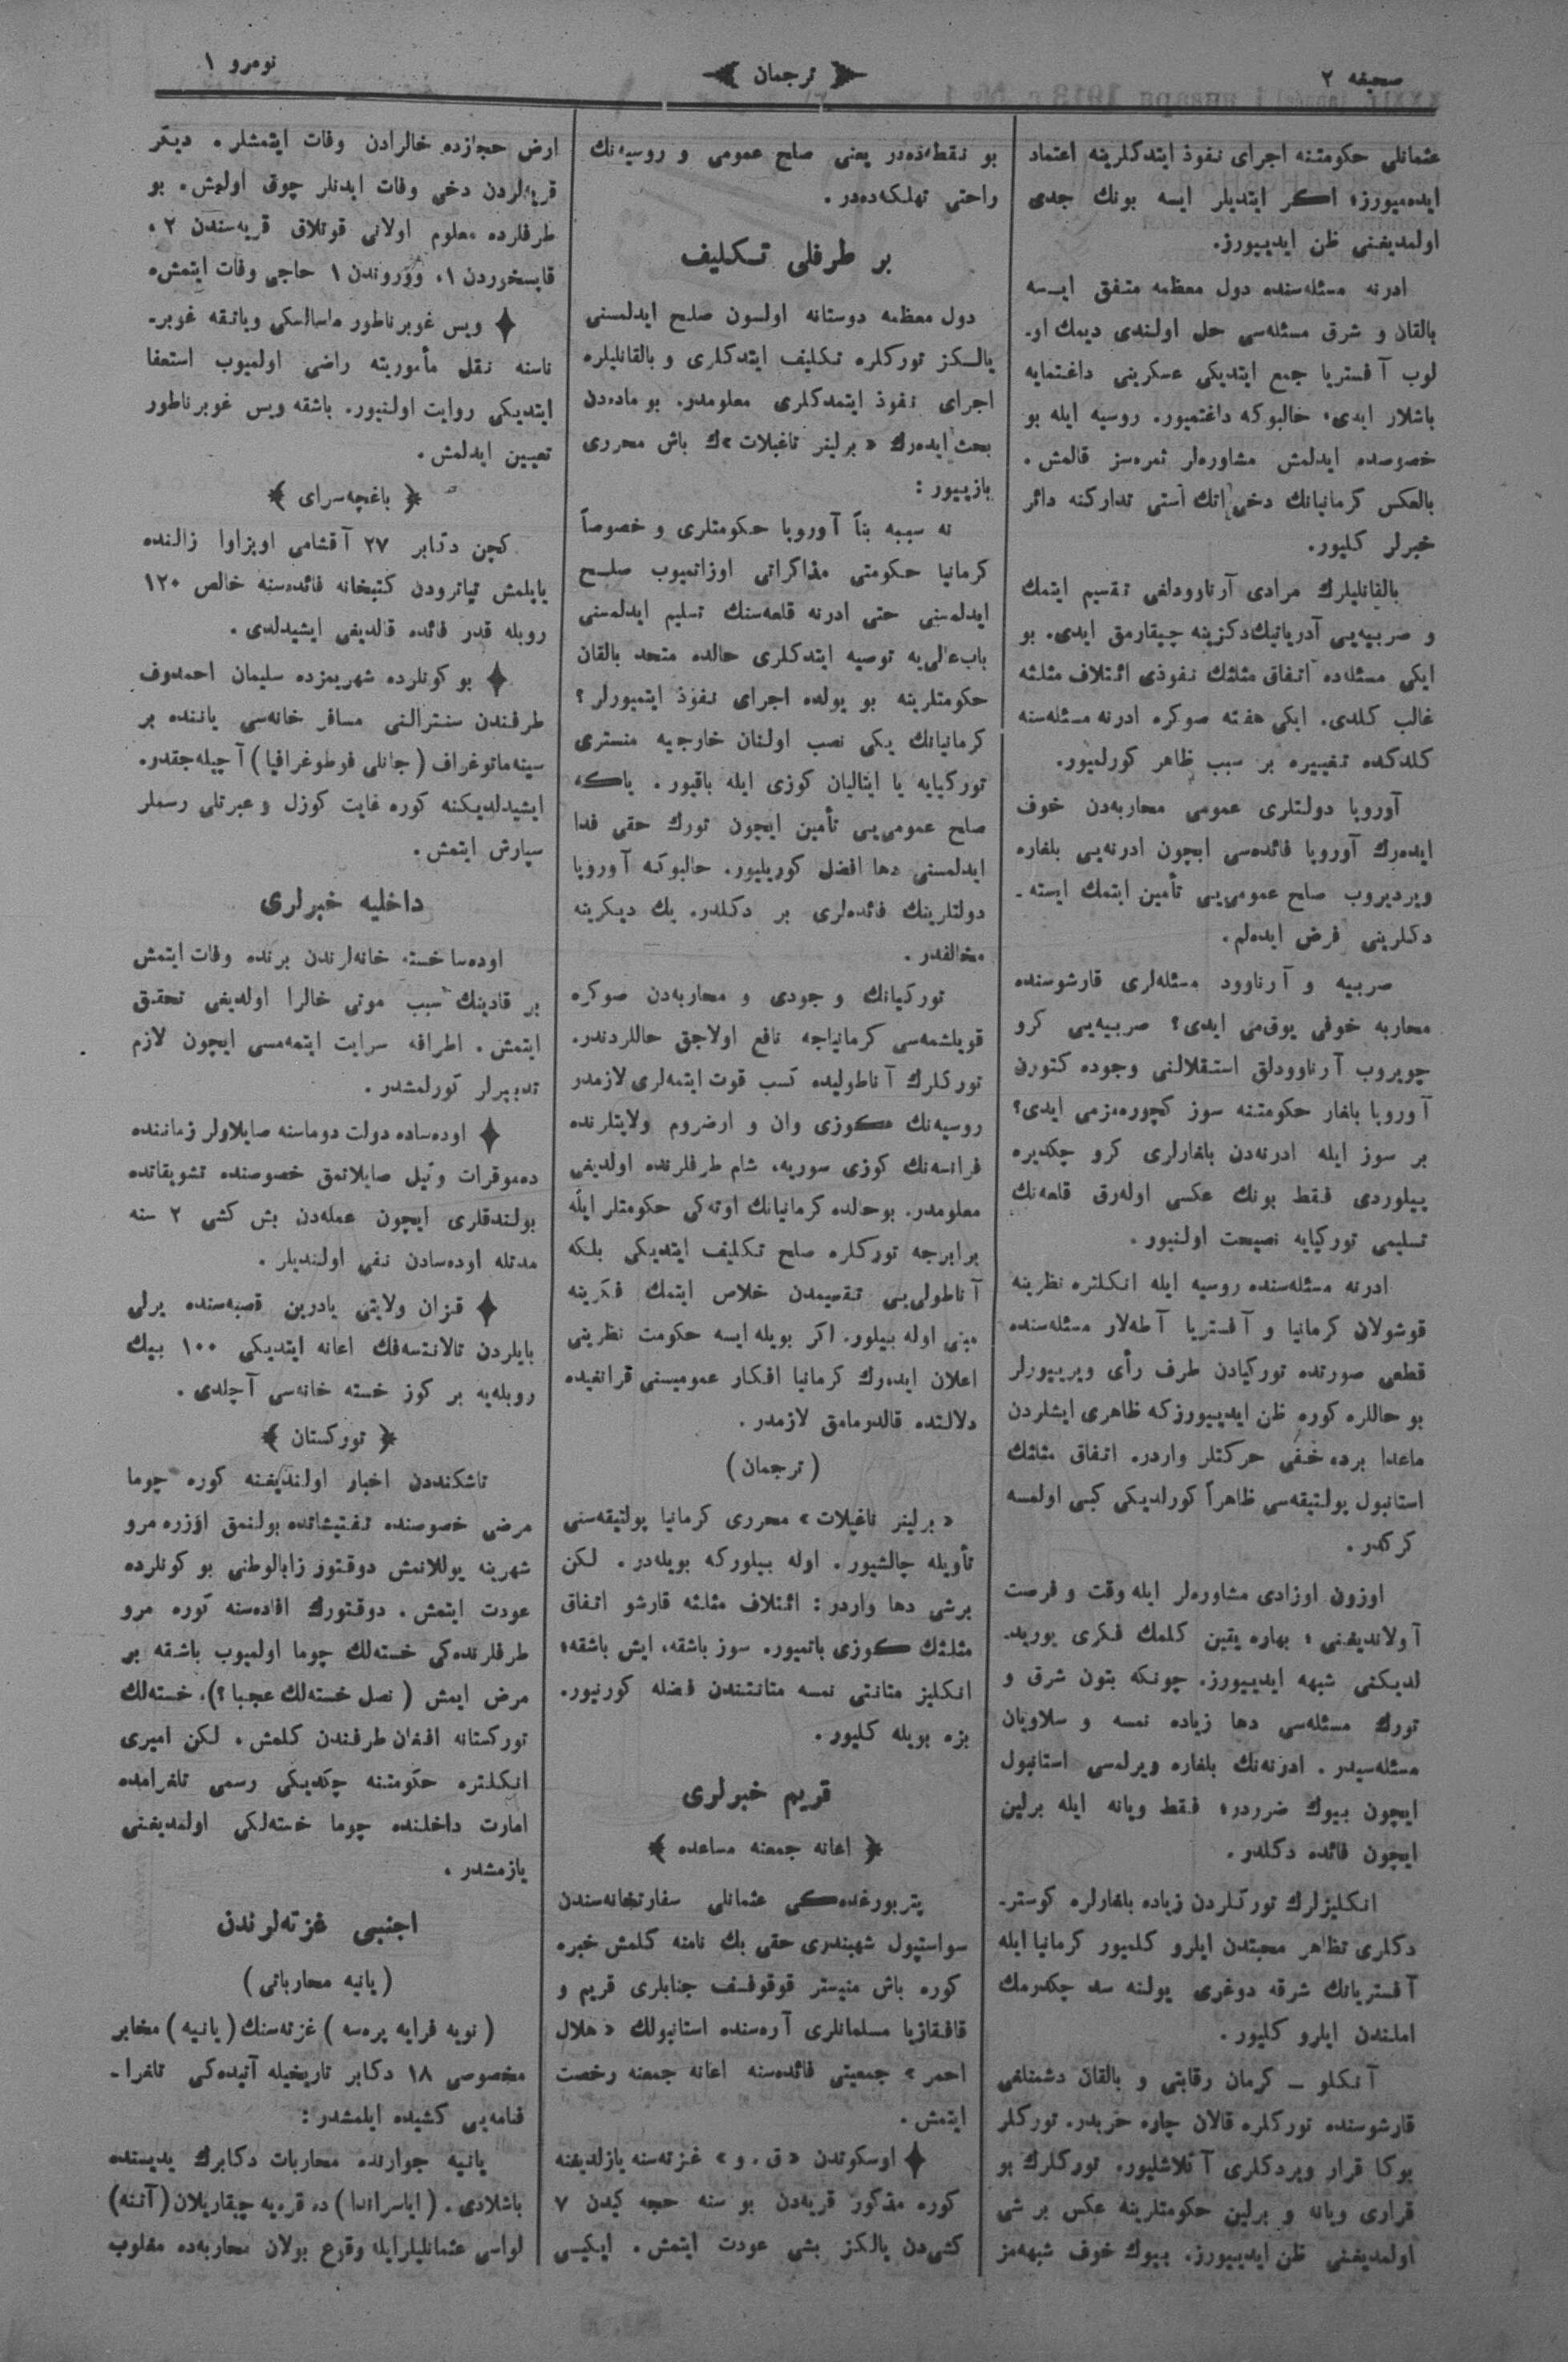 صحیفه ۲
ترجمان
نومرو ۱
عثمانلی حكومتنه اجرای نفوذ ایتدكلرینه اعتماد
ایده‌میورز؛ اكر ایتدیلر ایسه بونك جدی
اولمدیغنی ظن ایدییورز.
ادرنه مسئله‌سنده دول معظمه متفق ایسه
بالقان و شرق مسئله‌سی حل اولندی دیمك او-
لوب آفستریا جمع ایتدیكی عسكرینی داغتمایه
باشلار ایدی؛ حالبوكه داغتمیور. روسیه ایله بو
خصوصده ایدلمش مشاوره‌لر ثمره‌سز قالمش.
بالعكس كرمانیانك دخی آتك آستی تداركنه دائر
خبرلر كلیور.
بالقانلیلرك مرادی آرناوودلغی تقسیم ایتمك
و صربیه‌یی آدریاتیك دكزینه چیقارمق ایدی. بو
ایكی مسئله‌ده اتفاق مثلثك نفوذی ائتلاف مثلثه
غالب كلدی. ایكی هفته صوكره ادرنه مسئله‌سنه
كلدكده تغییره بر سبب ظاهر كورلمیور.
آوروپا دولتلری عمومی محاربه‌دن خوف
ایده‌رك آوروپا فائده‌سی ایچون ادرنه‌یی بلغاره
ویردیروب صلح عمومی‌یی تأمین ایتمك ایسته-
دكلرینی فرض ایده‌لم.
صربیه و آرناوود مسئله‌لری قارشوسنده
محاربه خوفی یوق‌می ایدی؟ صربیه‌یی كرو
چویروب آرناوودلق استقلالنی وجوده كتورن
آوروپا بلغار حكومتنه سوز كچوره‌مزمی ایدی؟
بر سوز ایله ادرنه‌دن بلغارلری كرو چكدیره
بیلوردی فقط بونك عكسی اوله‌رق قلعه‌نك
تسلیمی توركیایه نصیحت اولنیور.
ادرنه مسئله‌سنده روسیه ایله انكلتره نظرینه
قوشولان كرمانیا و آفستریا آطه‌لار مسئله‌سنده
قطعی صورتده توركیادن طرف رأی ویرییورلر
بو حاللره كوره ظن ایدییورزكه ظاهری ایشلردن
ماعدا برده خفی حركتلر واردر. اتفاق مثلثك
استانبول پولتیقه‌سی ظاهراً كورلدیكی كبی اولمسه
كركدر.
اوزون اوزادی مشاوره‌لر ایله وقت و فرصت
آولاندیغنی؛ بهاره یقین كلمك فكری یورید-
لدیكنی شبهه ایدییورز. چونكه بتون شرق و
تورك مسئله‌سی دها زیاده نمسه و سلاویان
مسئله‌سیدر. ادرنه‌نك بلغاره ویرلمسی استانبول
ایچون بیوك ضرردر؛ فقط ویانه ایله برلین
ایچون فائده دكلدر.
انكلیزلرك توركلردن زیاده بلغارلره كوستر-
دكلری تظاهر محبتدن ایلرو كلمیور كرمانیا ایله
آفستریانك شرقه دوغری یولنه سد چكدرمك
املندن ایلرو كلیور.
آنكلو — كرمان رقابتی و بالقان دشمنلغی
قارشوسنده توركلره قالان چاره حربدر. توركلر
بوكا قرار ویردكلری آكلاشلیور. توركلرك بو
قراری ویانه و برلین حكومتلرینه عكس بر شی
اولمدیغنی ظن ایدییورز. بیوك خوف شبهه‌مز
بو نقطه‌ده‌در یعنی صلح عمومی و روسیه‌نك
راحتی تهلكه‌ده‌در.
بر طرفلی تكلیف
دول معظمه دوستانه اولسون صلح ایدلمسنی
یالكز توركلره تكلیف ایتدكلری و بالقانلیلره
اجرای نفوذ ایتمدكلری معلومدر. بو ماده‌دن
بحث ایده‌رك «برلینر تاغبلات»ك باش محرری
یازییور:
نه سببه بناً آوروپا حكومتلری و خصوصاً
كرمانیا حكومتی مذاكراتی اوزاتمیوب صلح
ایدلمسنی حتی ادرنه قلعه‌سنك تسلیم ایدلمسنی
باب‌عالی‌یه توصیه ایتدكلری حالده متحد بالقان
حكومتلرینه بو یولده اجرای نفوذ ایتمیورلر؟
كرمانیانك یكی نصب اولنان خارجیه منستری
توركیایه یا ایتالیان كوزی ایله باقیور. یاكه
صلح عمومی‌یی تأمین ایچون تورك حقی فدا
ایدلمسنی دها افضل كوریلیور. حالبوكه آوروپا
دولتلرینك فائده‌لری بر دكلدر. یك دیكرینه
مخالفدر.
توركیانك وجودی و محاربه‌دن صوكره
قویلشمه‌سی كرمانیاجه نافع اولاجق حاللردندر.
توركلرك آناطولیده كسب قوت ایتمه‌لری لازمدر
روسیه‌نك كوزی وان و ارضروم ولایتلرنده
فرانسه‌نك كوزی سوریه، شام طرفلرنده اولدیغی
معلومدر. بو حالده كرمانیانك اوته‌كی حكومتلر ایله
برابرجه توركلره صلح تكلیف ایتدیكی بلكه
آناطولی‌یی تقسیمدن خلاص ایتمك فكرینه
مبنی اوله بیلور. اكر بویله ایسه حكومت نظرینی
اعلان ایده‌رك كرمانیا افكار عمومیسنی قرانغیده
دلالتده قالدرمامق لازمدر.
(ترجمان)
«برلینر تاغبلات» محرری كرمانیا پولتیقه‌سنی
تأویله چالشیور. اوله بیلوركه بویله‌در. لكن
برشی دها واردر: ائتلاف مثلثه قارشو اتفاق
مثلثك كوزی باتمیور. سوز باشقه، ایش باشقه؛
انكلیز متانتی نمسه متانتندن فضله كورنیور.
بزه بویله كلیور.
قریم خبرلری
﴿ اعانه جمعنه مساعده ﴾
پتربورغده‌كی عثمانلی سفارتخانه‌سندن
سواستپول شهبندری حقی بك نامنه كلمش خبره
كوره باش منیستر قوقوفسف جنابلری قریم و
قافقازیا مسلمانلری آره‌سنده استانبولك «هلال
احمر» جمعیتی فائده‌سنه اعانه جمعنه رخصت
ایتمش.
اوسكوتدن «ق. و» غزته‌سنه یازلدیغنه
كوره مذكور قریه‌دن بو سنه حجه كیدن ۷
كشی‌دن یالكز بشی عودت ایتمش. ایكیسی
ارض حجازده خالرادن وفات ایتمشلر. دیكر
قریه‌لردن دخی وفات ایدنلر چوق اولمش. بو
طرفلرده معلوم اولانی قوتلاق قریه‌سندن ۲،
قاپسخوردن ۱، ووروندن ۱ حاجی وفات ایتمش.
ویس غوبرناطور ماسالسكی ویاتقه غوبر-
ناسنه نقل مأموریته راضی اولمیوب استعفا
ایتدیكی روایت اولنیور. باشقه ویس غوبرناطور
تعیین ایدلمش.
﴿ باغچه‌سرای ﴾
كچن دكابر ۲۷ آقشامی اوپزاوا زالنده
یاپلمش تیاترودن كتبخانه فائده‌سنه خالص ۱۲۰
روبله قدر فائده قالدیغی ایشیدلدی.
بو كونلرده شهریمزده سلیمان احمدوف
طرفندن سنترالنی مسافر خانه‌سی یاننده بر
سینه‌ماتوغراف (جانلی فوطوغرافیا) آچیله‌جقدر.
ایشیدلدیكنه كوره غایت كوزل و عبرتلی رسملر
سپارش ایتمش.
داخلیه خبرلری
اوده‌سا خسته خانه‌لرندن برنده وفات ایتمش
بر قادینك سبب موتی خالرا اولدیغی تحقیق
ایتمش. اطرافه سرایت ایتمه‌مسی ایچون لازم
تدبیرلر كورلمشدر.
اوده‌ساده دولت دوماسنه صایلاولر زماننده
ده‌موقرات وكیل صایلاتمق خصوصنده تشویقاتده
بولندقلری ایچون عمله‌دن بش كشی ۲ سنه
مدتله اوده‌سادن نفی اولندیلر.
قزان ولایتی یادرین قصبه‌سنده یرلی
بایلردن تالانتسه‌فك اعانه ایتدیكی ۱۰۰ بیك
روبله‌یه بر كوز خسته خانه‌سی آچلدی.
﴿ توركستان ﴾
تاشكنددن اخبار اولندیغنه كوره چوما
مرضی خصوصنده تفتیشاتده بولنمق اوزره مرو
شهرینه یوللانمش دوقتور زابالوطنی بو كونلرده
عودت ایتمش. دوقتورك افاده‌سنه كوره مرو
طرفلرنده‌كی خسته‌لك چوما اولمیوب باشقه بر
مرض ایمش (نصل خسته‌لك عجبا؟). خسته‌لك
توركستانه افغان طرفندن كلمش. لكن امیری
انكلتره حكومتنه چكدیكی رسمی تلغرامده
امارت داخلنده چوما خسته‌لكی اولمدیغنی
یازمشدر.
اجنبی غزته‌لرندن
(یانیه محارباتی)
(نویه فرایه پره‌سه) غزته‌سنك (یانیه) مخابر
مخصوصی ۱۸ دكابر تاریخیله آتیده‌كی تلغرا-
فنامه‌یی كشیده ایلمشدر:
یانیه جوارنده محاربات دكابرك یدیسنده
باشلادی. (ایاسراندا) ده قره‌یه چیقاریلان (آتنه)
لواسی عثمانلیلر ایله وقوع بولان محاربه‌ده مغلوب